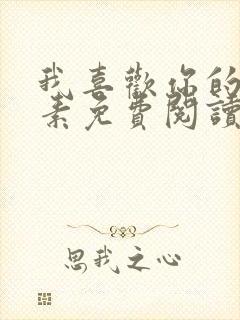 我喜歡你的
素免費閱讀
思我之心